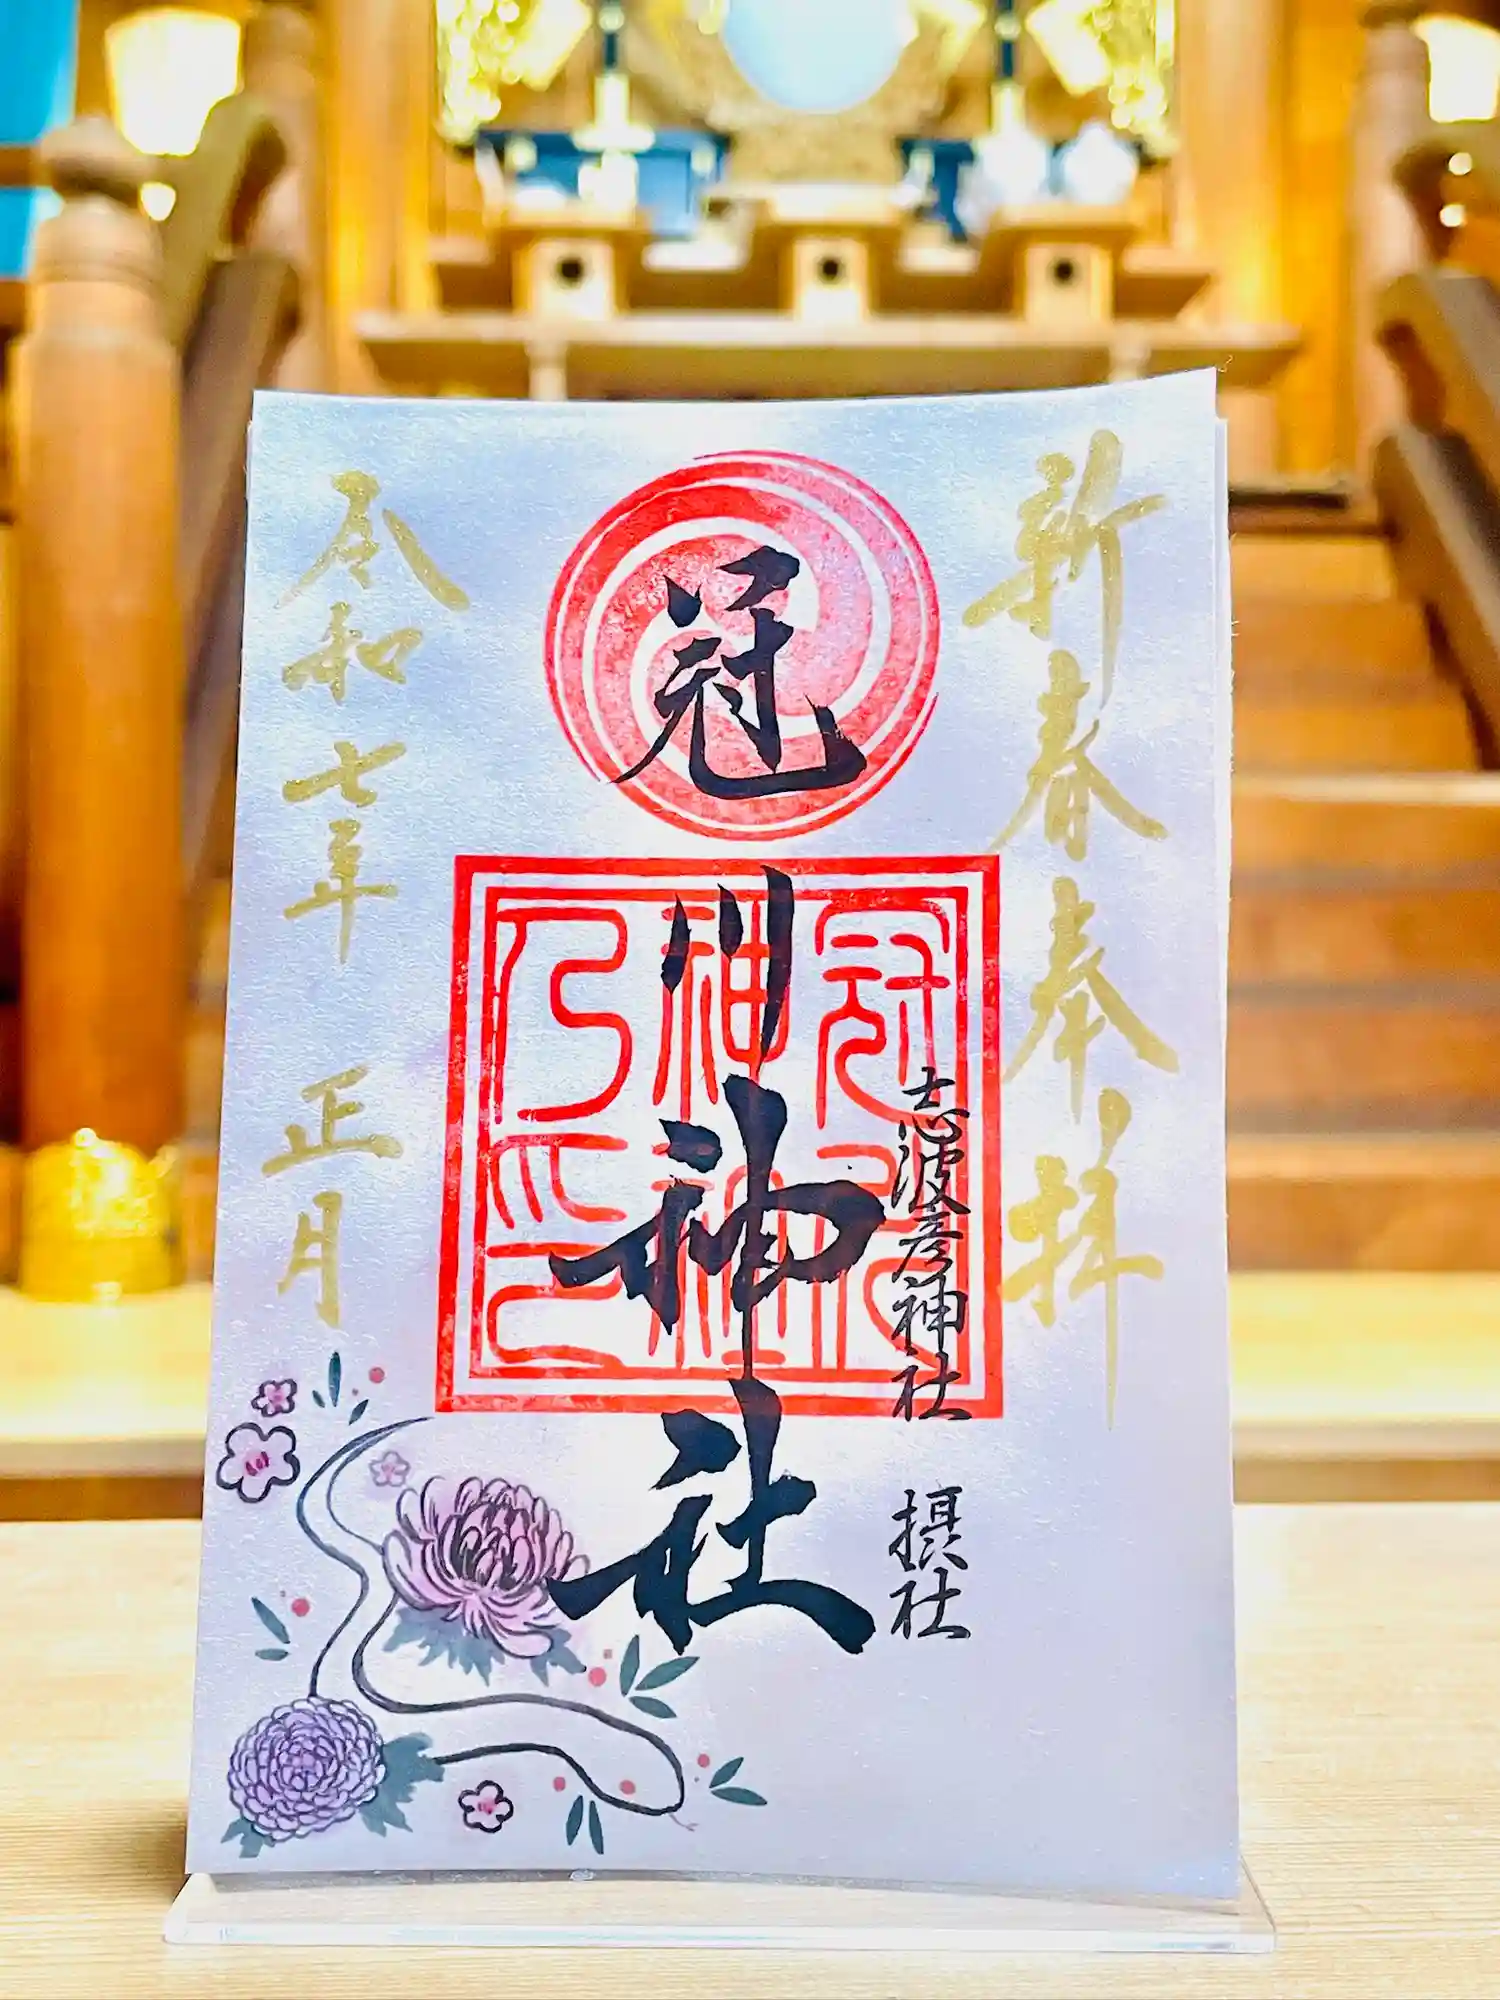 新春奉拝
志波彦神社 摂社
冠川神社
冠川神社乃印
令和七年 正月